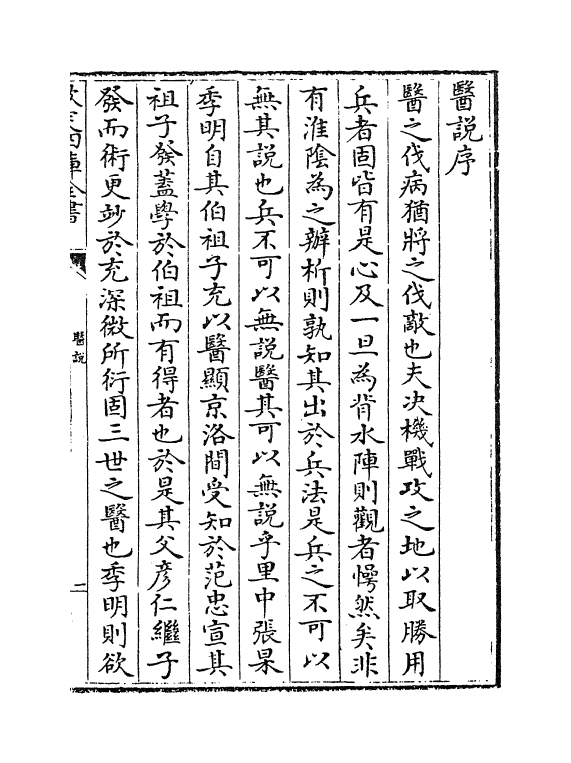 醫說序
醫之伐病猶將之伐敵也夫决機戰攻之地以取勝用
兵者固皆有是心及一旦為背水陣則觀者愕然矣非
有淮陰為之辦析則孰知其出於兵法是兵之不可以
無其說也兵不可以無說醫其可以無說乎里中張杲
季明自其伯祖子充以醫顯京洛間受知於范忠宣其
祖子發蓋學於伯祖而有得者也於是其父彦仁繼子
發而術更妙於充深微所衍固三世之醫也季明則欲
欽定四庫全書
醫說
二